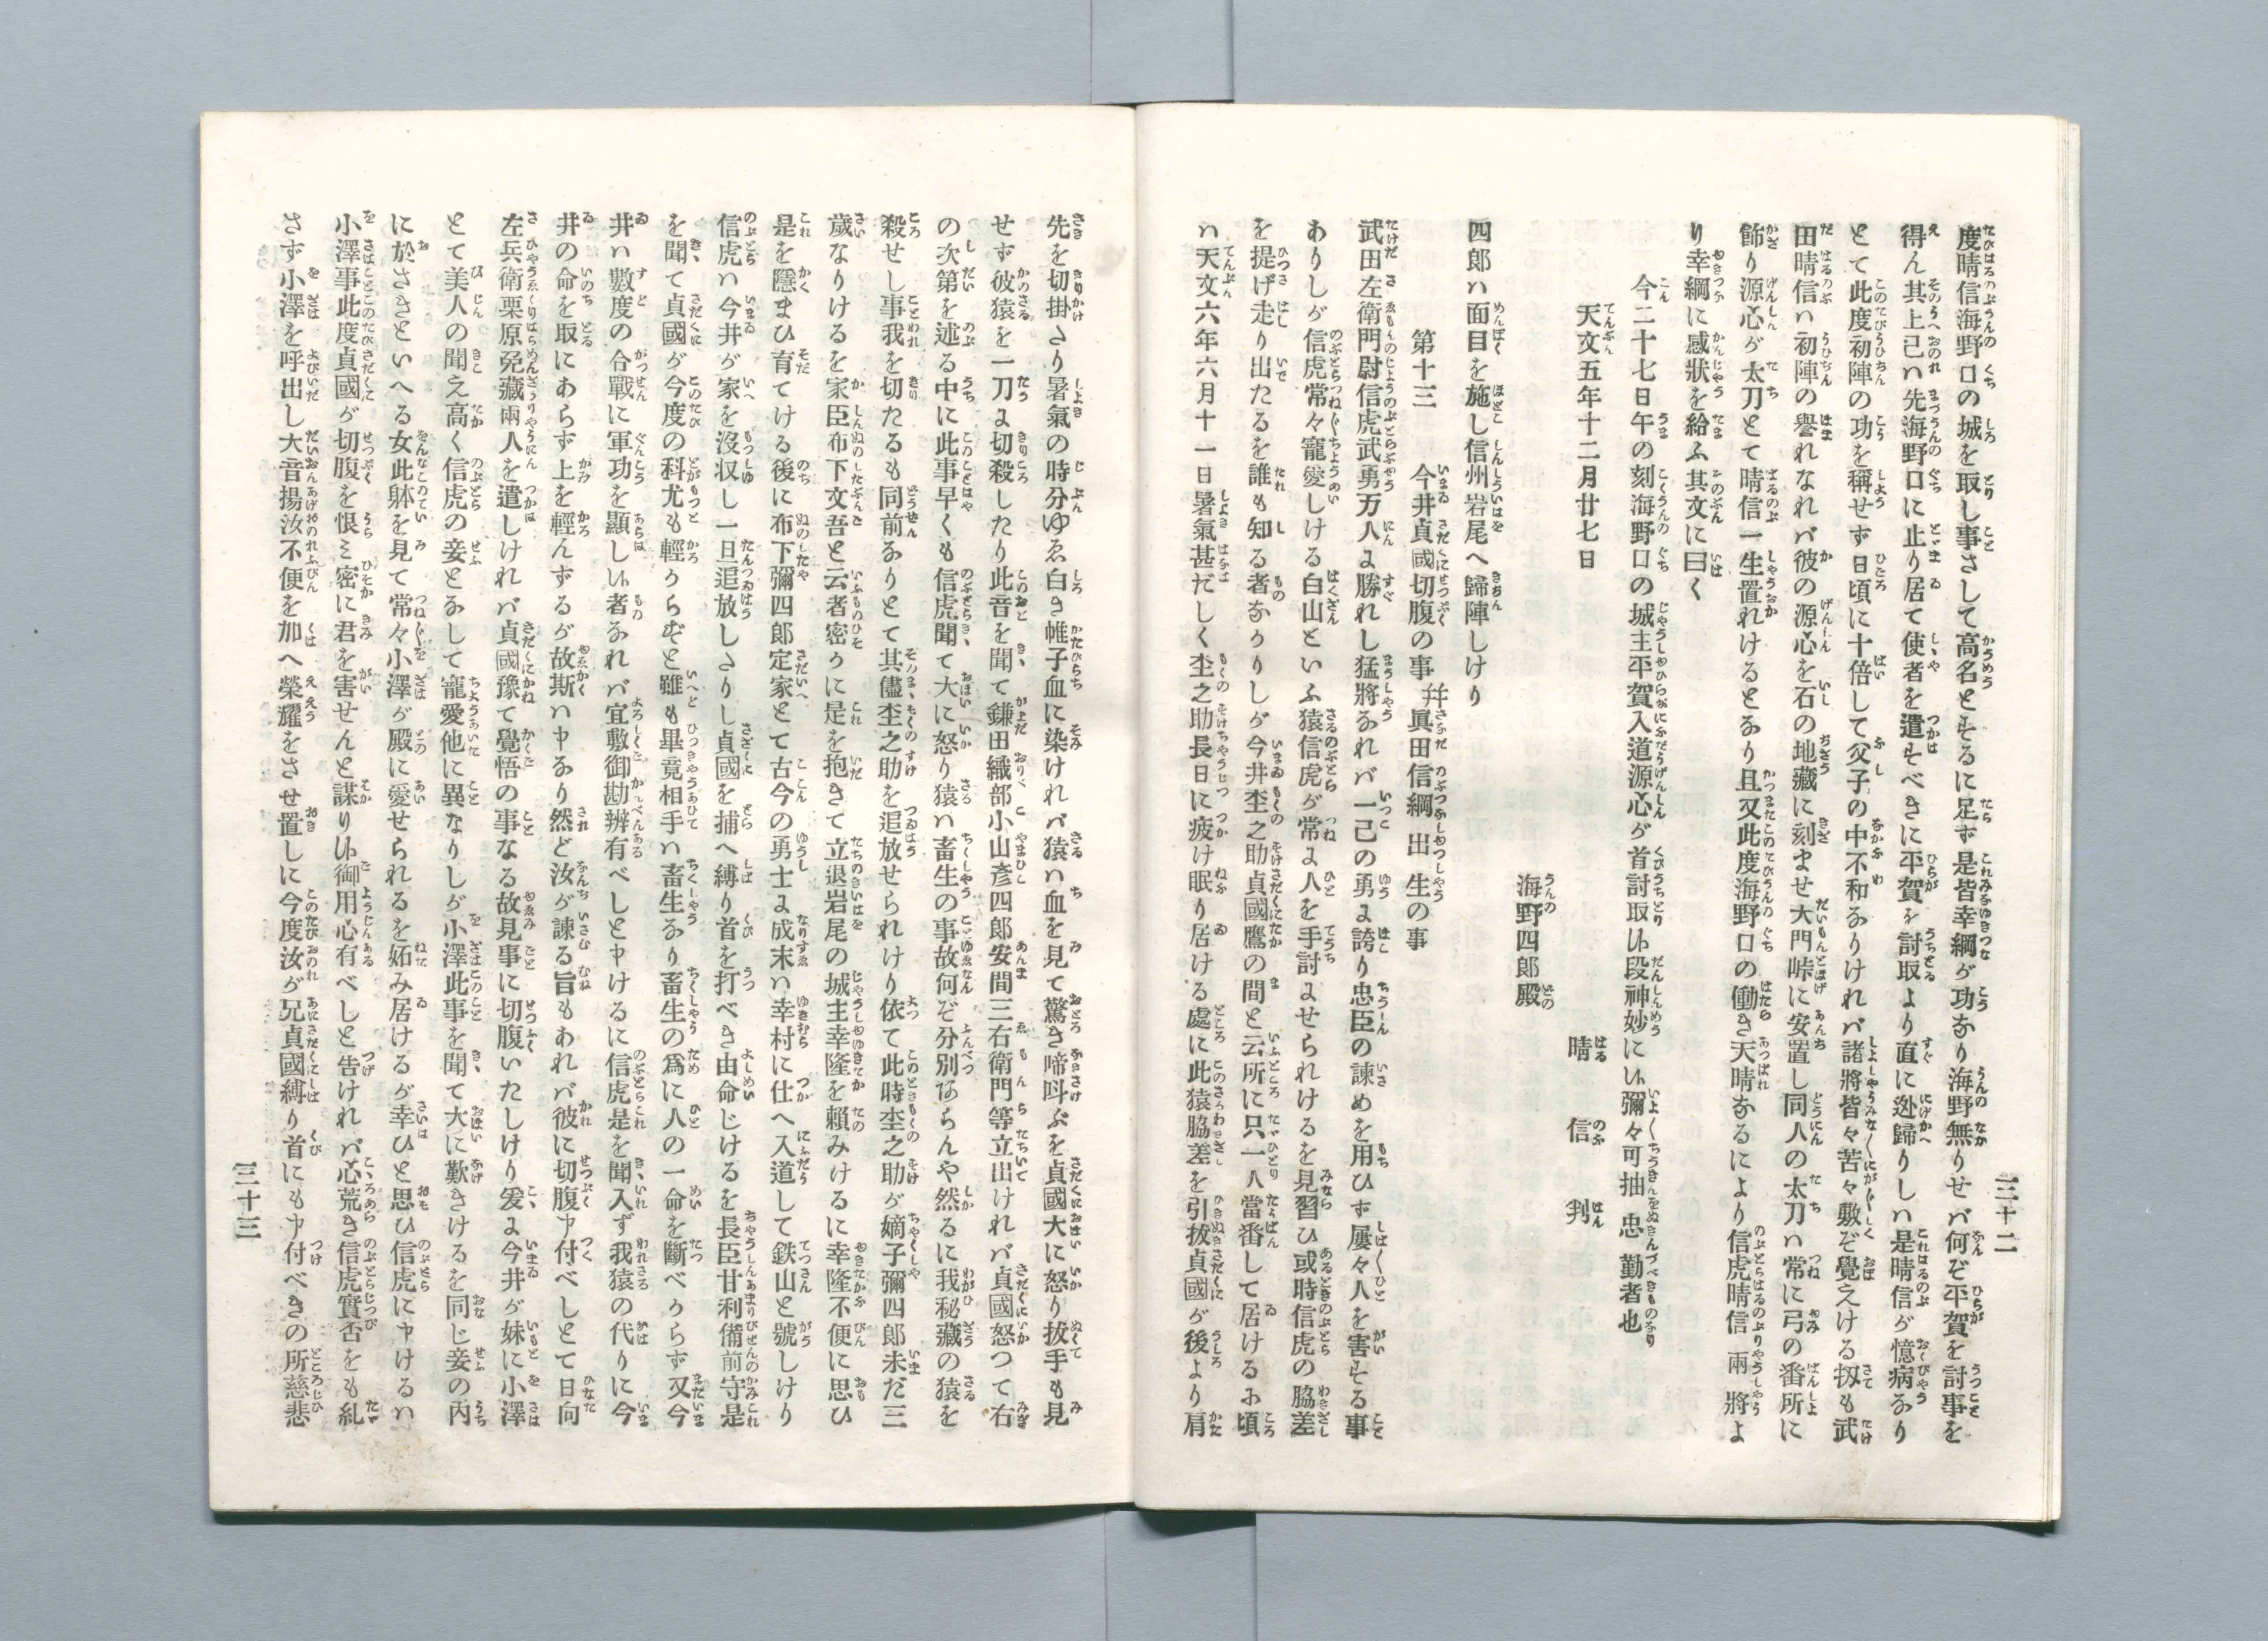 三十二
度晴信海野口の城を取し事さして高名とするに足ず是皆幸綱が功なり海野無りせバ何ぞ平賀を討事を
得ん其上己ハ先海野口に止り居て使者を遣すべきに平賀を討取より直に迯歸りしハ是晴信が憶病なり
とて此度初陣の功を稱せず日頃に十倍して父子の中不和なりけれバ諸將皆々苦々敷ぞ覺えける扨も武
田晴信ハ初陣の譽れなれバ彼の源心を石の地藏に刻ませ大門峠に安置し同人の太刀ハ常に弓の番所に
飾り源心が太刀とて晴信一生置れけるとなり且又此度海野口の働き天晴なるにより信虎晴信兩將よ
り幸綱に感狀を給ふ其文に曰く
今二十七日午の刻海野口の城主平賀入道源心が首討取い段神妙にい彌々可抽忠勤者也
天文五年十二月廿七日
晴信判
海野四郎殿
四郎ハ面目を施し信州岩尾へ歸陣しけり
第十三　今井貞國切腹の事　幷眞田信綱出生の事
武田左衛門尉信虎武勇万人よ勝れし猛將なれバ一己の勇よ誇り忠臣の諫めを用ひず屢々人を害する事
ありしが信虎常々寵愛しける白山といふ猿信虎が常よ人を手討ませられけるを見習ひ或時信虎の脇差
を提げ走り出たるを誰も知る者なかりしが今井杢之助貞國鷹の間と云所に只一人當番して居けるお頃
ハ天文六年六月十一日暑氣甚だしく杢之助長日に疲け眠り居ける處に此猿脇差を引拔貞國が後より肩
先を切掛さり暑氣の時分ゆゑ白き帷子血に染けれバ猿ハ血を見て驚き啼叫ぶを貞國大に怒り拔手も見
せず彼猿を一刀よ切殺したり此音を聞て鎌田織部小山彥四郎安間三右衛門等立出けれバ貞國怒つて右
の次第を述る中に此事早くも信虎聞て大に怒り猿ハ畜生の事故何ぞ分別あらんや然るに我秘藏の猿を
殺せし事我を切たるも同前なりとて其儘杢之助を追放せられけり依て此時杢之助が嫡子彌四郎未だ三
歲なりけるを家臣布下文吾と云者密かに是を抱きて立退岩尾の城主幸隆を賴みけるに幸隆不便に思ひ
是を隱まひ育てける後に布下彌四郎定家とて古今の勇士よ成末ハ幸村に仕へ入道して鉄山と號しけり
信虎ハ今井が家を沒収し一旦追放しさりし貞國を捕へ縛り首を打べき由命じけるを長臣甘利備前守是
を聞て貞國が今度の科尤も輕からずと雖も畢竟相手ハ畜生なり畜生の爲に人の一命を斷べからず又今
井ハ數度の合戰に軍功を顯しい者なれバ宜敷御勘辨有べしと申けるに信虎是を聞入ず我猿の代りに今
井の命を取にあらず上を輕んずるが故斯ハ申なり然ど汝が諫る旨もあれバ彼に切腹申付べしとて日向
左兵衛栗原兵藏兩人を遣しけれバ貞國豫て覺悟の事なる故見事に切腹いたしけり爰よ今井が妹に小澤
とて美人の聞え高く信虎の妾となして寵愛他に異なりしが小澤此事を聞て大に歎きけるを同じ妾の內
に於さきといへる女此躰を見て常々小澤が殿に愛せられるを妬み居けるが幸ひと思ひ信虎に申けるハ
小澤事此度貞國が切腹を恨ミ密に君を害せんと謀りい御用心有べしと告けれバ心荒き信虎實否をも糺
さず小澤を呼出し大音揚汝不便を加へ榮耀をさせ置しに今度汝が兄貞國縛り首にも申付べきの所慈悲
三十三